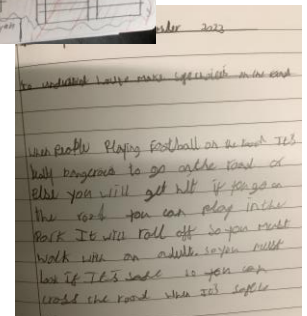 2023
to understand how to make
in the road
when people Playing Football on the road It's
really Dangerous to go on the road or
Else you will get hit if you go on
the road you can play in the
Park It will roll off so you must
walk with an adult so you must
look if It's safe so you can
cross the road when It's safe